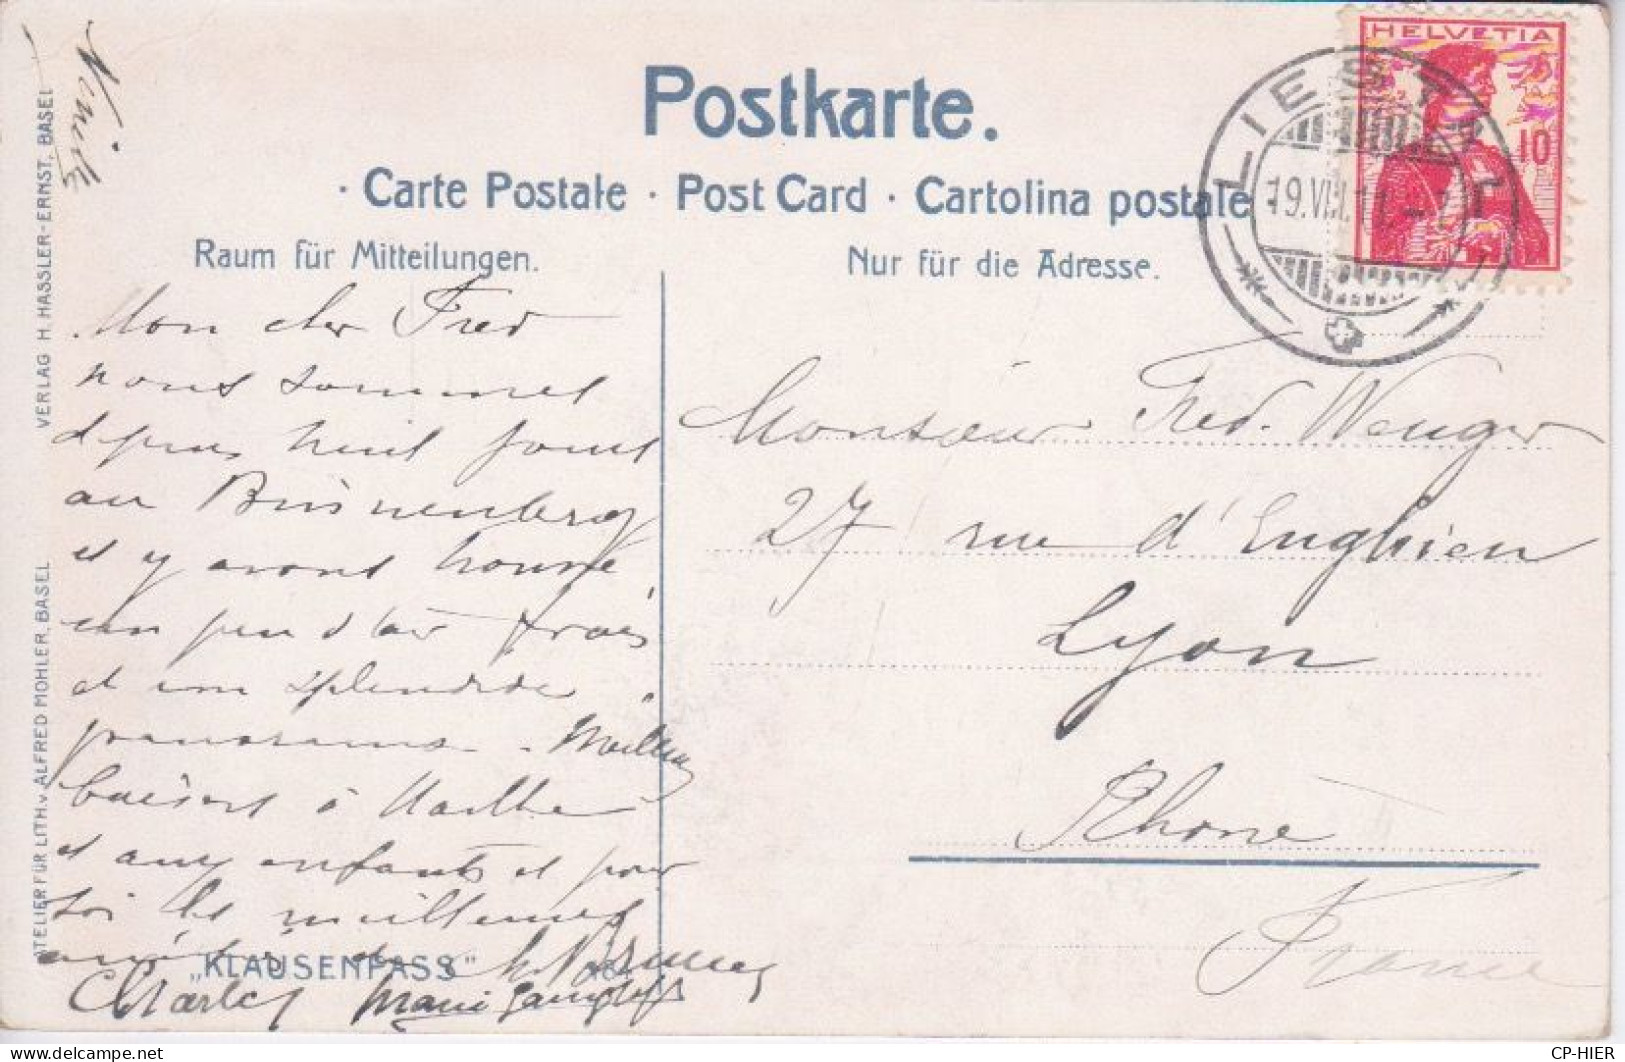 Postkarte.
· Carte Postale · Post Card · Cartolina postale
Raum für Mitteilungen.
Nur für die Adresse.
HELVETIA
10
LIESTAL
19.VIII.11
VERLAG H. HASSLER-ERNST, BASEL
ATELIER FÜR LITH. v. ALFRED MOHLER, BASEL
Mon cher Fred
nous sommes
depuis huit jours
au Bienenberg
et y avons trouvé
un peu d'air frais
et un splendide
panorama. Meilleurs
baisers à Marthe
et aux enfants et pour
toi les meilleures
amitiés de
Charles Marie
„KLAUSENPASS“
Monsieur Fred. Wenger
27 rue d'Enghien
Lyon
Rhône
France
CP-HIER